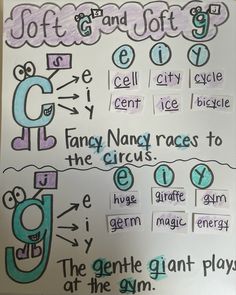 Soft c and Soft g
e i y
s
c
e
i
y
cell city cycle
cent ice bicycle
Fancy Nancy races to
the circus.
e i y
j
g
e
i
y
huge giraffe gym
germ magic energy
The gentle giant plays
at the gym.